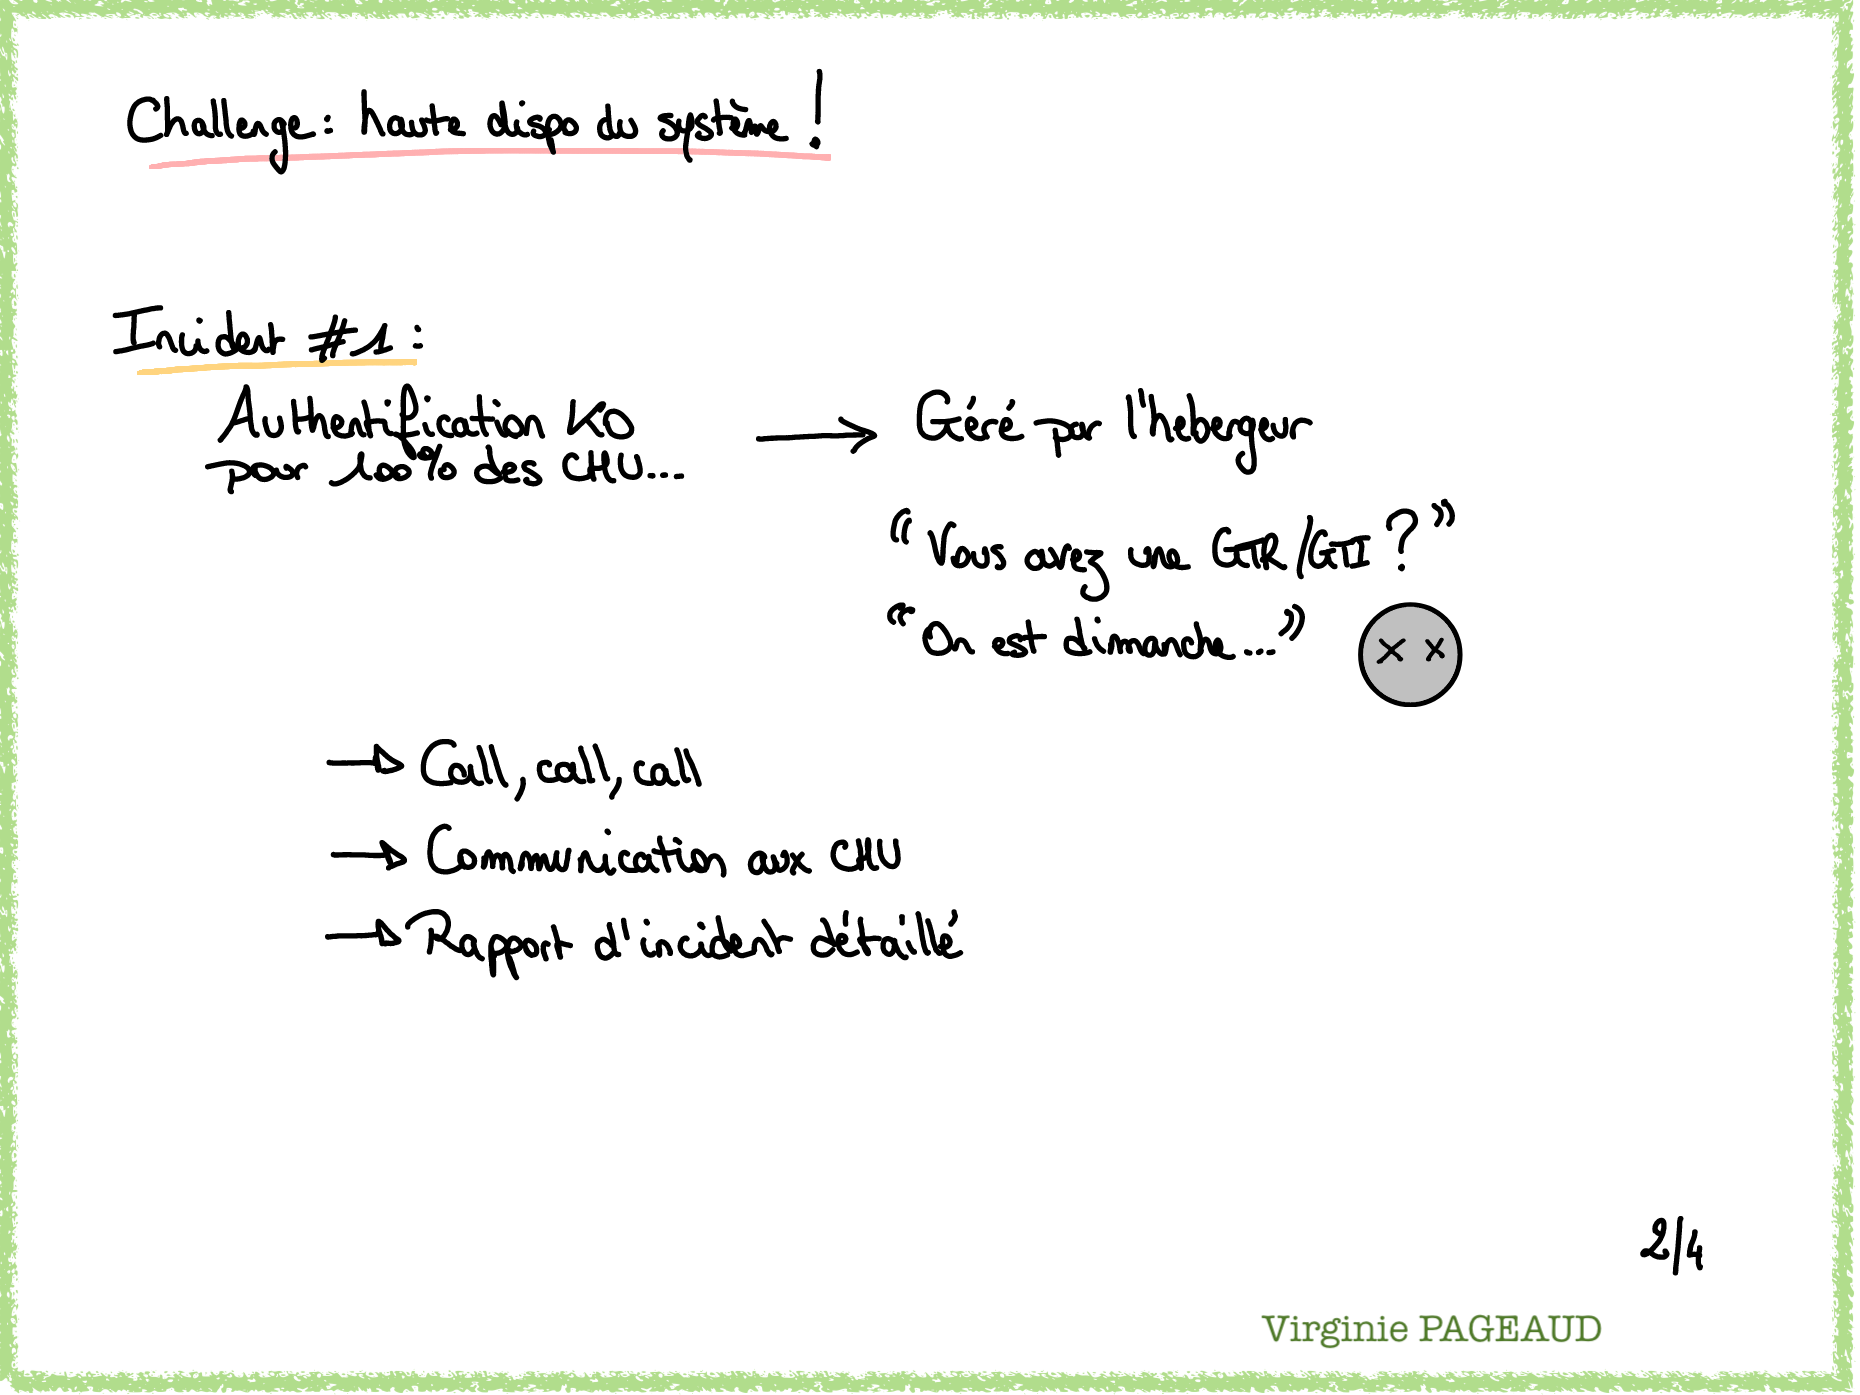 Challenge : haute dispo du système !
Incident #1 :
Authentification KO
pour 100% des CHU...
→ Géré par l'hebergeur
“Vous avez une GTR/GTI ?”
“On est dimanche...”
→ Call, call, call
→ Communication aux CHU
→ Rapport d'incident détaillé
2/4
Virginie PAGEAUD